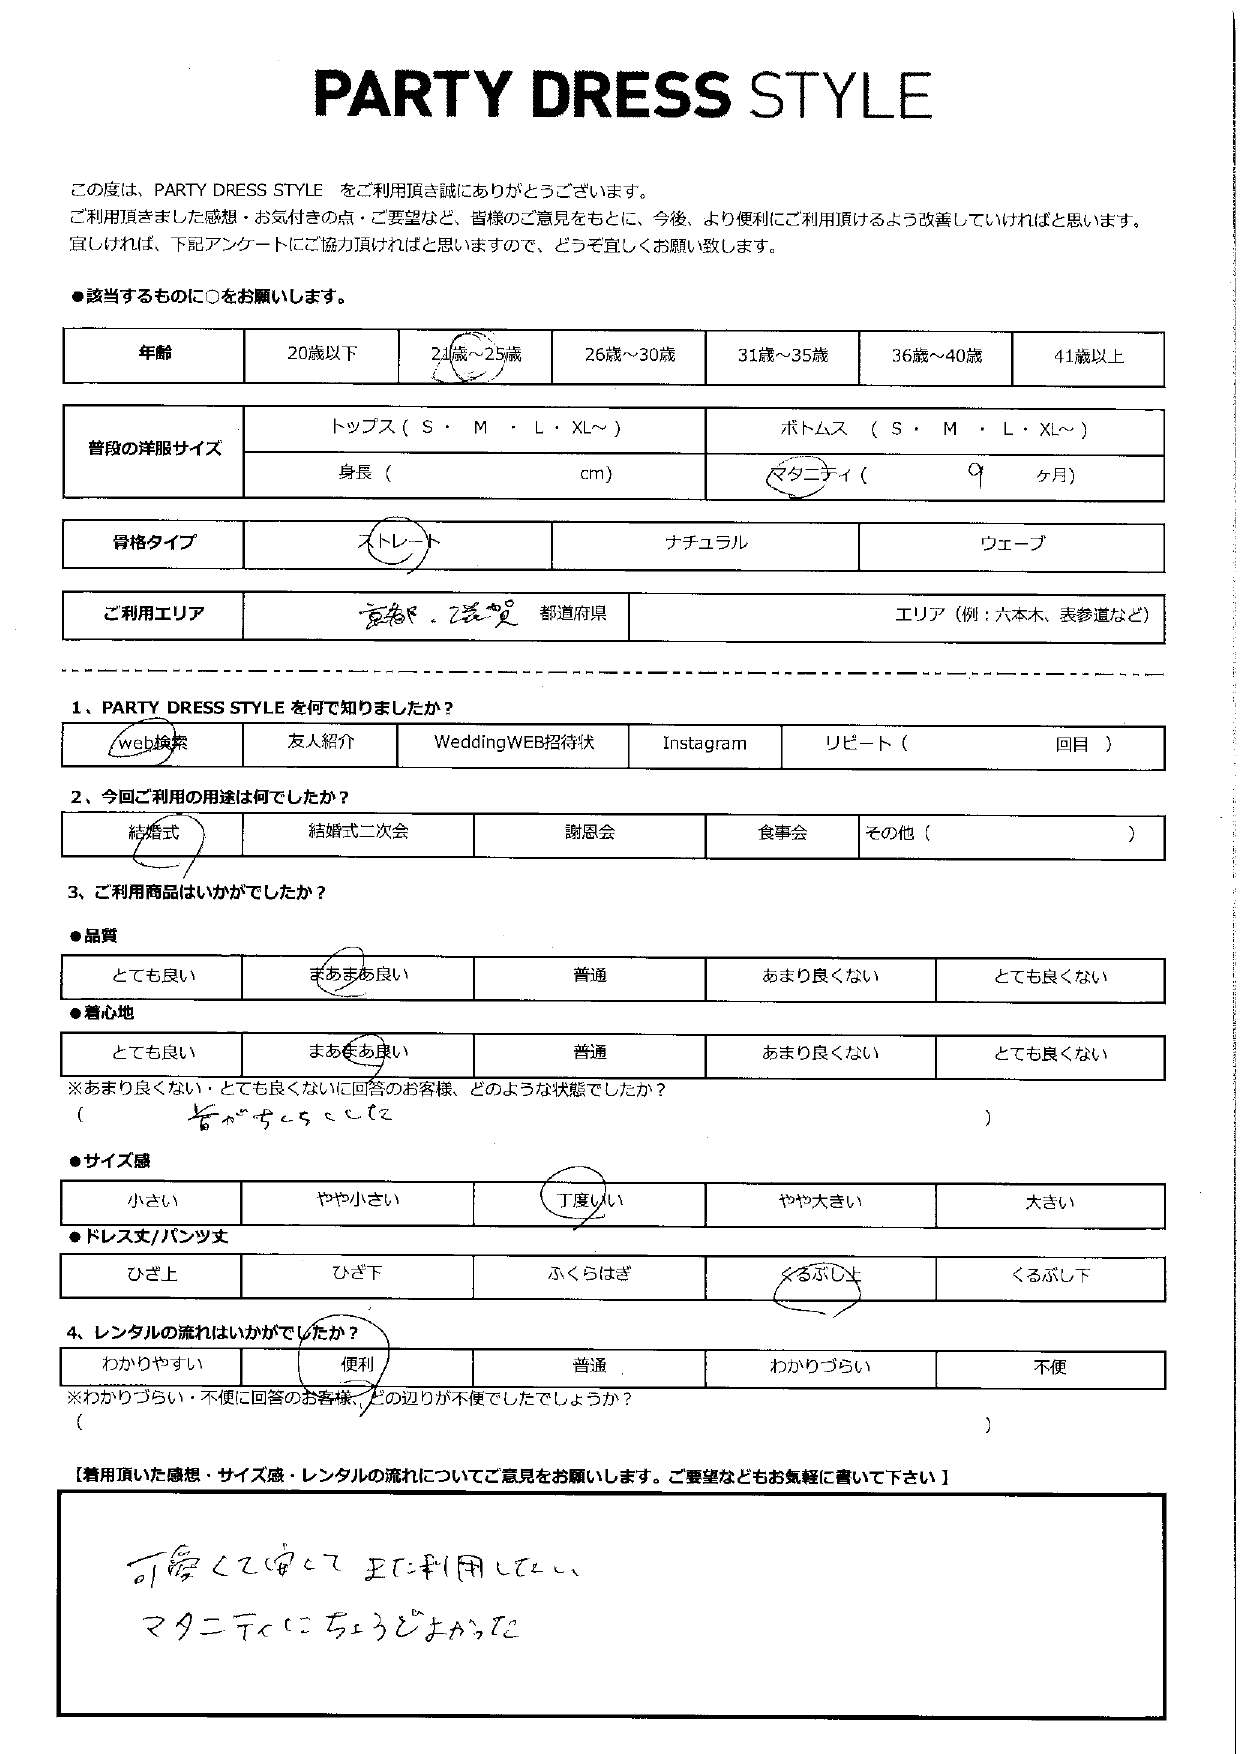 PARTY DRESS STYLE
この度は、PARTY DRESS STYLE をご利用頂き誠にありがとうございます。
ご利用頂きました感想・お気付きの点・ご要望など、皆様のご意見をもとに、今後、より便利にご利用頂けるよう改善していければと思います。
宜しければ、下記アンケートにご協力頂ければと思いますので、どうぞ宜しくお願い致します。
●該当するものに○をお願いします。
年齢 20歳以下 21歳～25歳 26歳～30歳 31歳～35歳 36歳～40歳 41歳以上
普段の洋服サイズ
トップス ( S ・ M ・ L ・ XL～ ) ボトムス ( S ・ M ・ L ・ XL～ )
身長 ( cm) マタニティ ( 9 ヶ月)
骨格タイプ ストレート ナチュラル ウェーブ
ご利用エリア 京都・滋賀 都道府県 エリア（例：六本木、表参道など）
1、PARTY DRESS STYLE を何で知りましたか？
web検索 友人紹介 WeddingWEB招待状 Instagram リピート ( 回目 )
2、今回ご利用の用途は何でしたか？
結婚式 結婚式二次会 謝恩会 食事会 その他 ( )
3、ご利用商品はいかがでしたか？
●品質
とても良い まあまあ良い 普通 あまり良くない とても良くない
●着心地
とても良い まあまあ良い 普通 あまり良くない とても良くない
※あまり良くない・とても良くないに回答のお客様、どのような状態でしたか？
( )
●サイズ感
小さい やや小さい 丁度いい やや大きい 大きい
●ドレス丈/パンツ丈
ひざ上 ひざ下 ふくらはぎ くるぶし上 くるぶし下
4、レンタルの流れはいかがでしたか？
わかりやすい 便利 普通 わかりづらい 不便
※わかりづらい・不便に回答のお客様、どの辺りが不便でしたでしょうか？
( )
【着用頂いた感想・サイズ感・レンタルの流れについてご意見をお願いします。ご要望などもお気軽に書いて下さい】
可愛くて安くてまた利用したい
マタニティにちょうどよかった